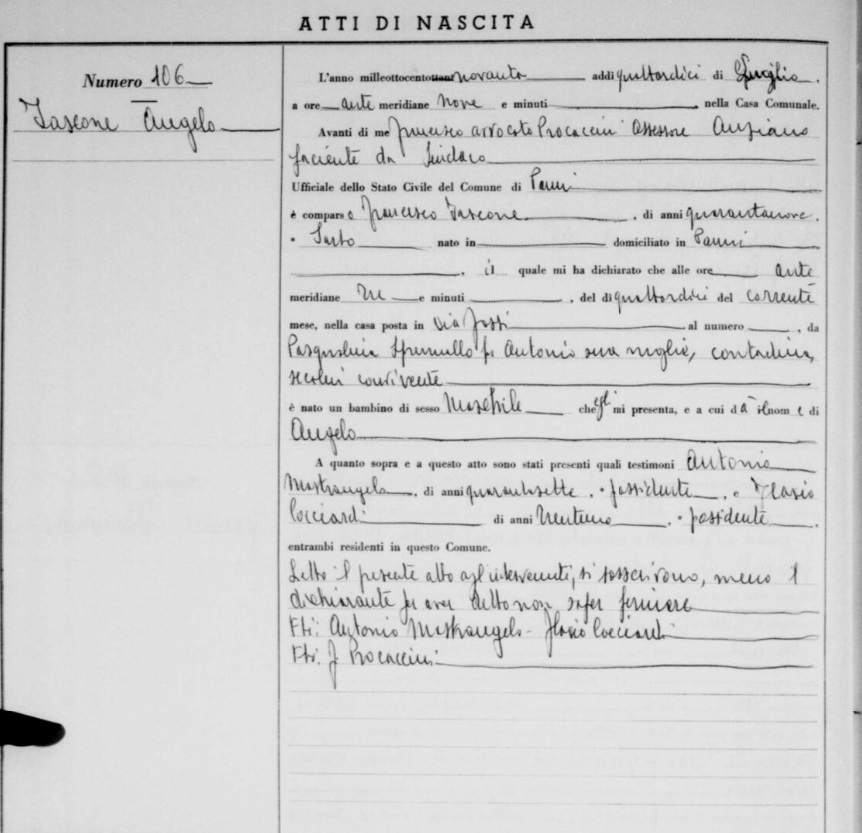 ATTI DI NASCITA
Numero 106
Iascone Angelo
L'anno milleottocento novanta addì quattordici di Luglio,
a ore ante meridiane nove e minuti , nella Casa Comunale.
Avanti di me Francesco avvocato Procaccini Assessore Anziano
faciente da Sindaco
Ufficiale dello Stato Civile del Comune di Panni
è comparso Francesco Iascone, di anni quarantanove,
Sarto nato in domiciliato in Panni
, il quale mi ha dichiarato che alle ore ante
meridiane tre e minuti , del dì quattordici del corrente
mese, nella casa posta in via al numero , da
Pasqualina Antonio sua moglie, contadina,
convivente
è nato un bambino di sesso Maschile che egli mi presenta, e a cui dà il nome di
Angelo
A quanto sopra e a questo atto sono stati presenti quali testimoni Antonio
Mastrangelo, di anni quarantasette, possidente, e Ilario
Cocciardi di anni trentuno, possidente,
entrambi residenti in questo Comune.
Letto il presente atto agl'intervenuti, si sottoscrivono, meno il
dichiarante per aver detto non saper firmare
Fti: Antonio Mastrangelo - Ilario Cocciardi
Fti: F Procaccini